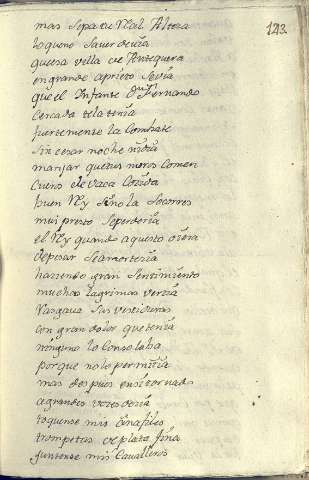 123
mas sepa tu Real Alteza
lo que no saver devia
que esa villa de Antequera
en grande aprieto se via
que el Infante Dn Fernando
cercada te la tenia
fuertemente la combate
sin cesar noche ni dia
manjar que tus moros comen
cueros de vaca cocida
buen Rey si no la socorres
mui presto se perderia
el Rey quando aquesto oiera
de pesar se amortecia
haziendo gran sentimiento
muchas lagrimas vertia
rasgava sus vestiduras
con gran dolor que tenia
ninguno lo consolaba
porque no lo permitia
mas despues en si tornado
a grandes vozes dezia
toquense mis añafiles
trompetas de plata fina
juntense mis cavalleros